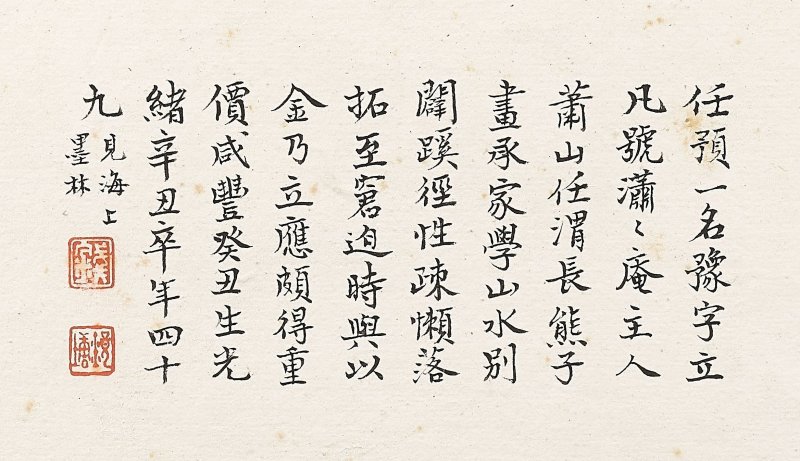 任預一名豫字立
凡號瀟〻庵主人
蕭山任渭長熊子
畫承家學山水別
闢蹊徑性疎懶落
拓至窘迫時與以
金乃立應頗得重
價咸豐癸丑生光
緒辛丑卒年四十
九
見海上
墨林